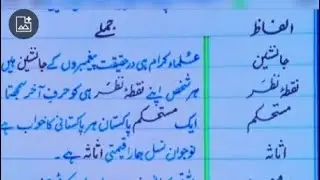 الفاظ جملے
جانشین علماء کرام ہی درحقیقت پیغمبروں کے جانشین ہیں
نقطۂ نظر ہر شخص اپنے نقطۂ نظر ہی کو حرفِ آخر سمجھتا
مستحکم ایک مستحکم پاکستان ہر پاکستانی کا خواب ہے
اثاثہ نوجوان نسل ہمارا قیمتی اثاثہ ہے۔